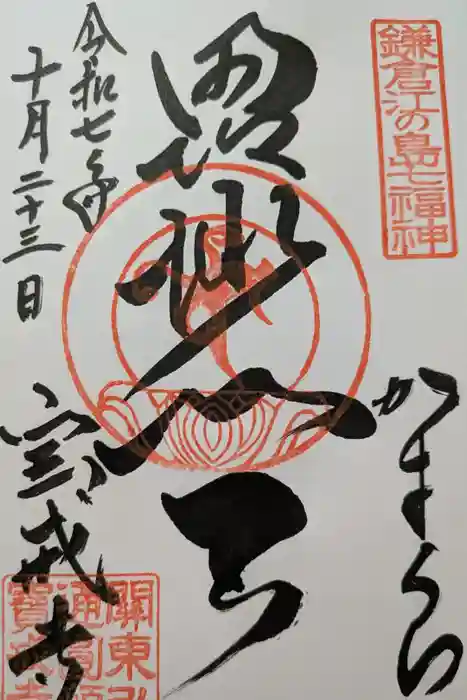 鎌倉江の島七福神
かまくら
毘沙門天
令和七年
十月二十三日
宝戒寺
關東弘
通圓頓
寶戒寺